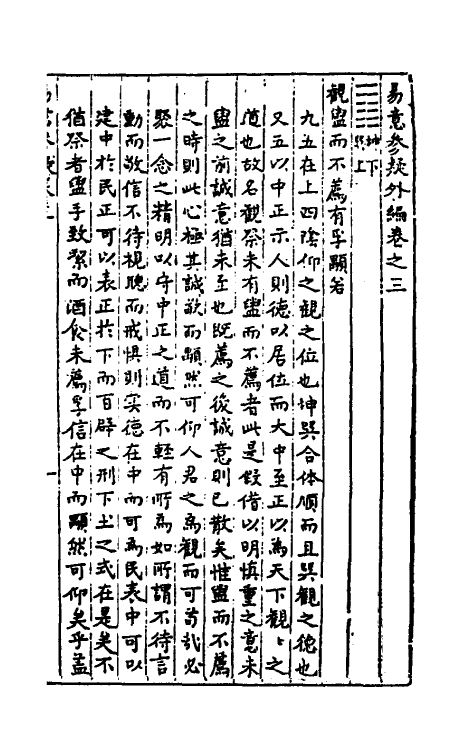 易意参疑外編卷之三
坤下
巽上
觀盥而不薦有孚顒若
九五在上四陰仰之觀之位也坤巽合体順而且巽觀之德也
又五以中正示人則德以居位而大中至正以為天下觀々之
道也故名觀祭未有盥而不薦者此是假借以明慎重之意未
盥之前誠意猶未至也既薦之後誠意則已散矣惟盥而不薦
之時則此心極其誠敬而顒然可仰人君之為觀而可苟哉必
聚一念之精明以守中正之道而不輕有所為如所謂不待言
動而敬信不待視聴而戒惧則实德在中而可為民表中可以
建中於民正可以表正於下而百辟之刑下土之式在是矣不
猶祭者盥手致絜而酒食未薦孚信在中而顒然可仰矣乎盖